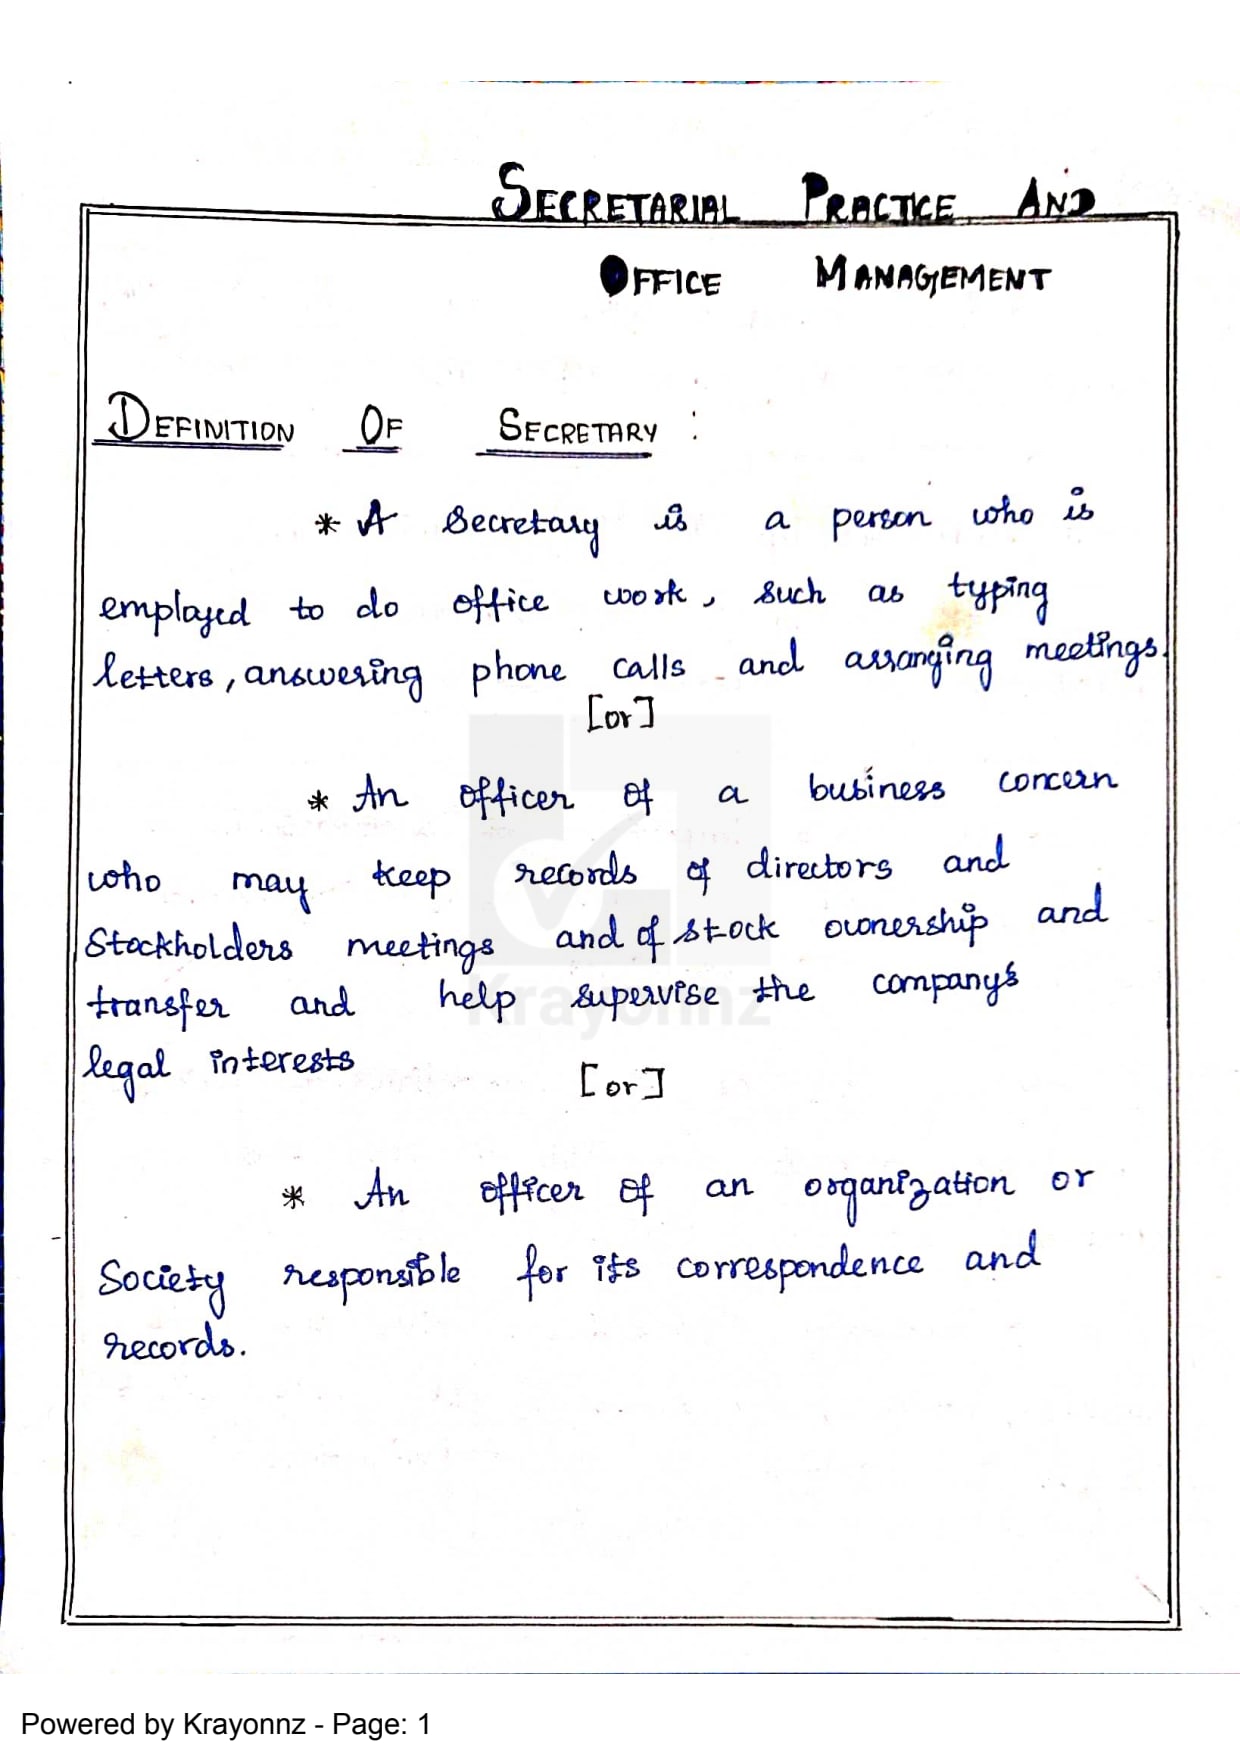 SECRETARIAL PRACTICE AND
OFFICE MANAGEMENT
DEFINITION OF SECRETARY :
* A Secretary is a person who is
employed to do office work, such as typing
letters, answering phone calls and arranging meetings.
[or]
* An officer of a business concern
who may keep records of directors and
Stockholders meetings and of stock ownership and
transfer and help supervise the company's
legal interests
[or]
* An officer of an organization or
Society responsible for its correspondence and
records.
Krayonnz
Powered by Krayonnz - Page: 1